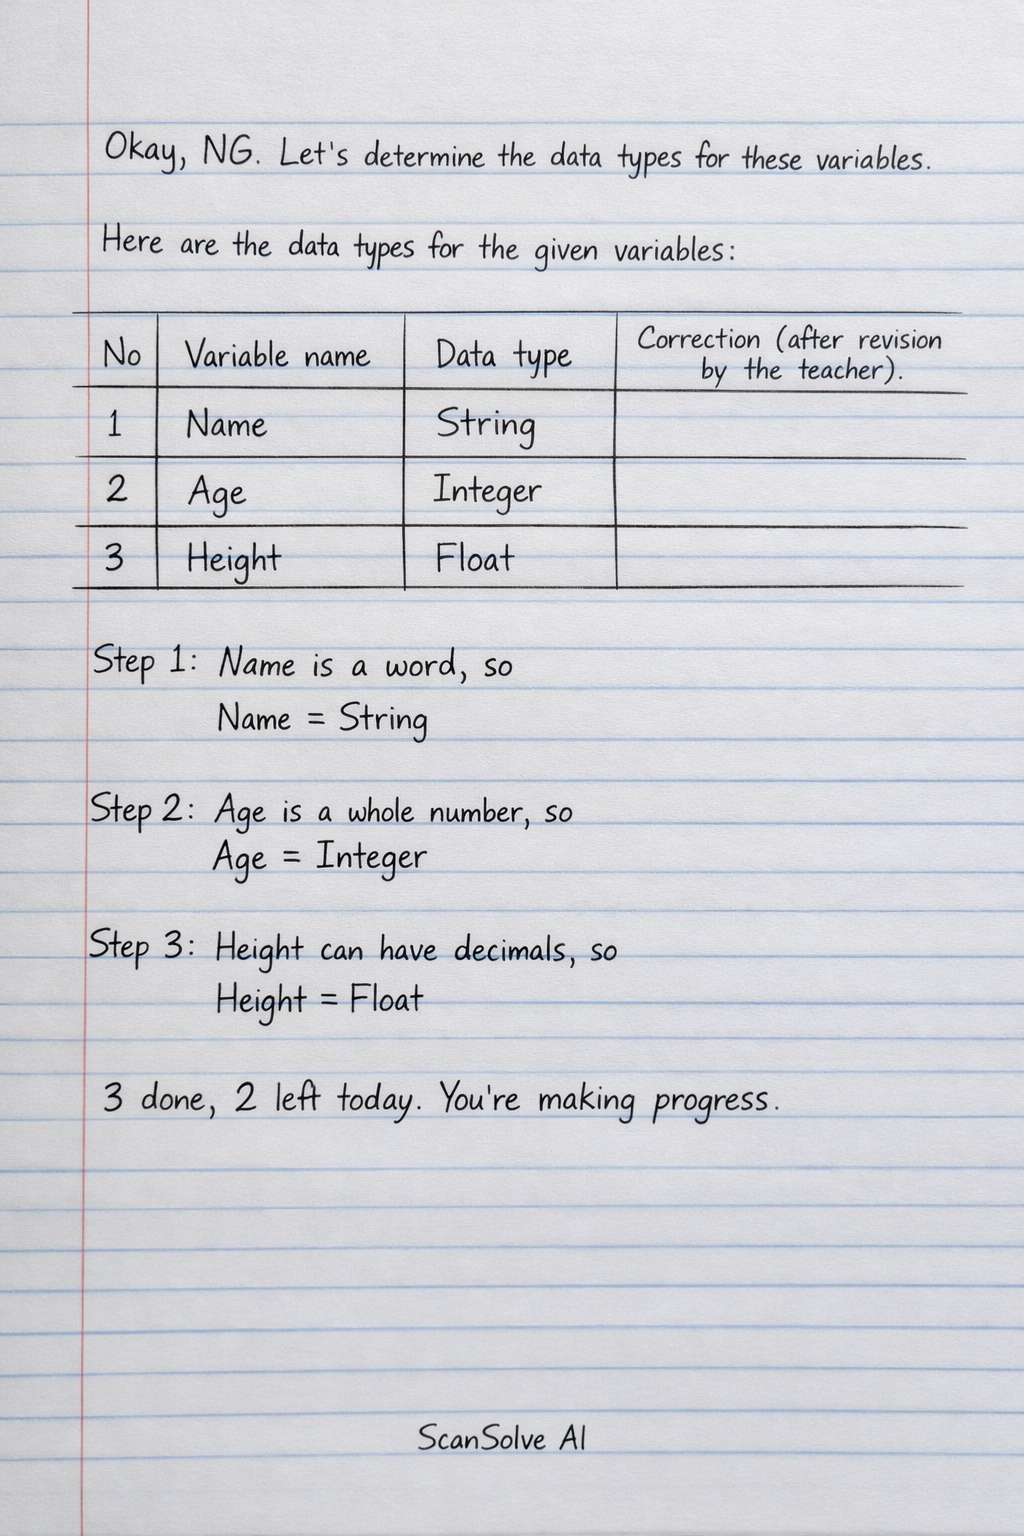 Okay, NG. Let's determine the data types for these variables.
Here are the data types for the given variables:
No Variable name Data type Correction (after revision by the teacher).
1 Name String
2 Age Integer
3 Height Float
Step 1: Name is a word, so
Name = String
Step 2: Age is a whole number, so
Age = Integer
Step 3: Height can have decimals, so
Height = Float
3 done, 2 left today. You're making progress.
ScanSolve AI